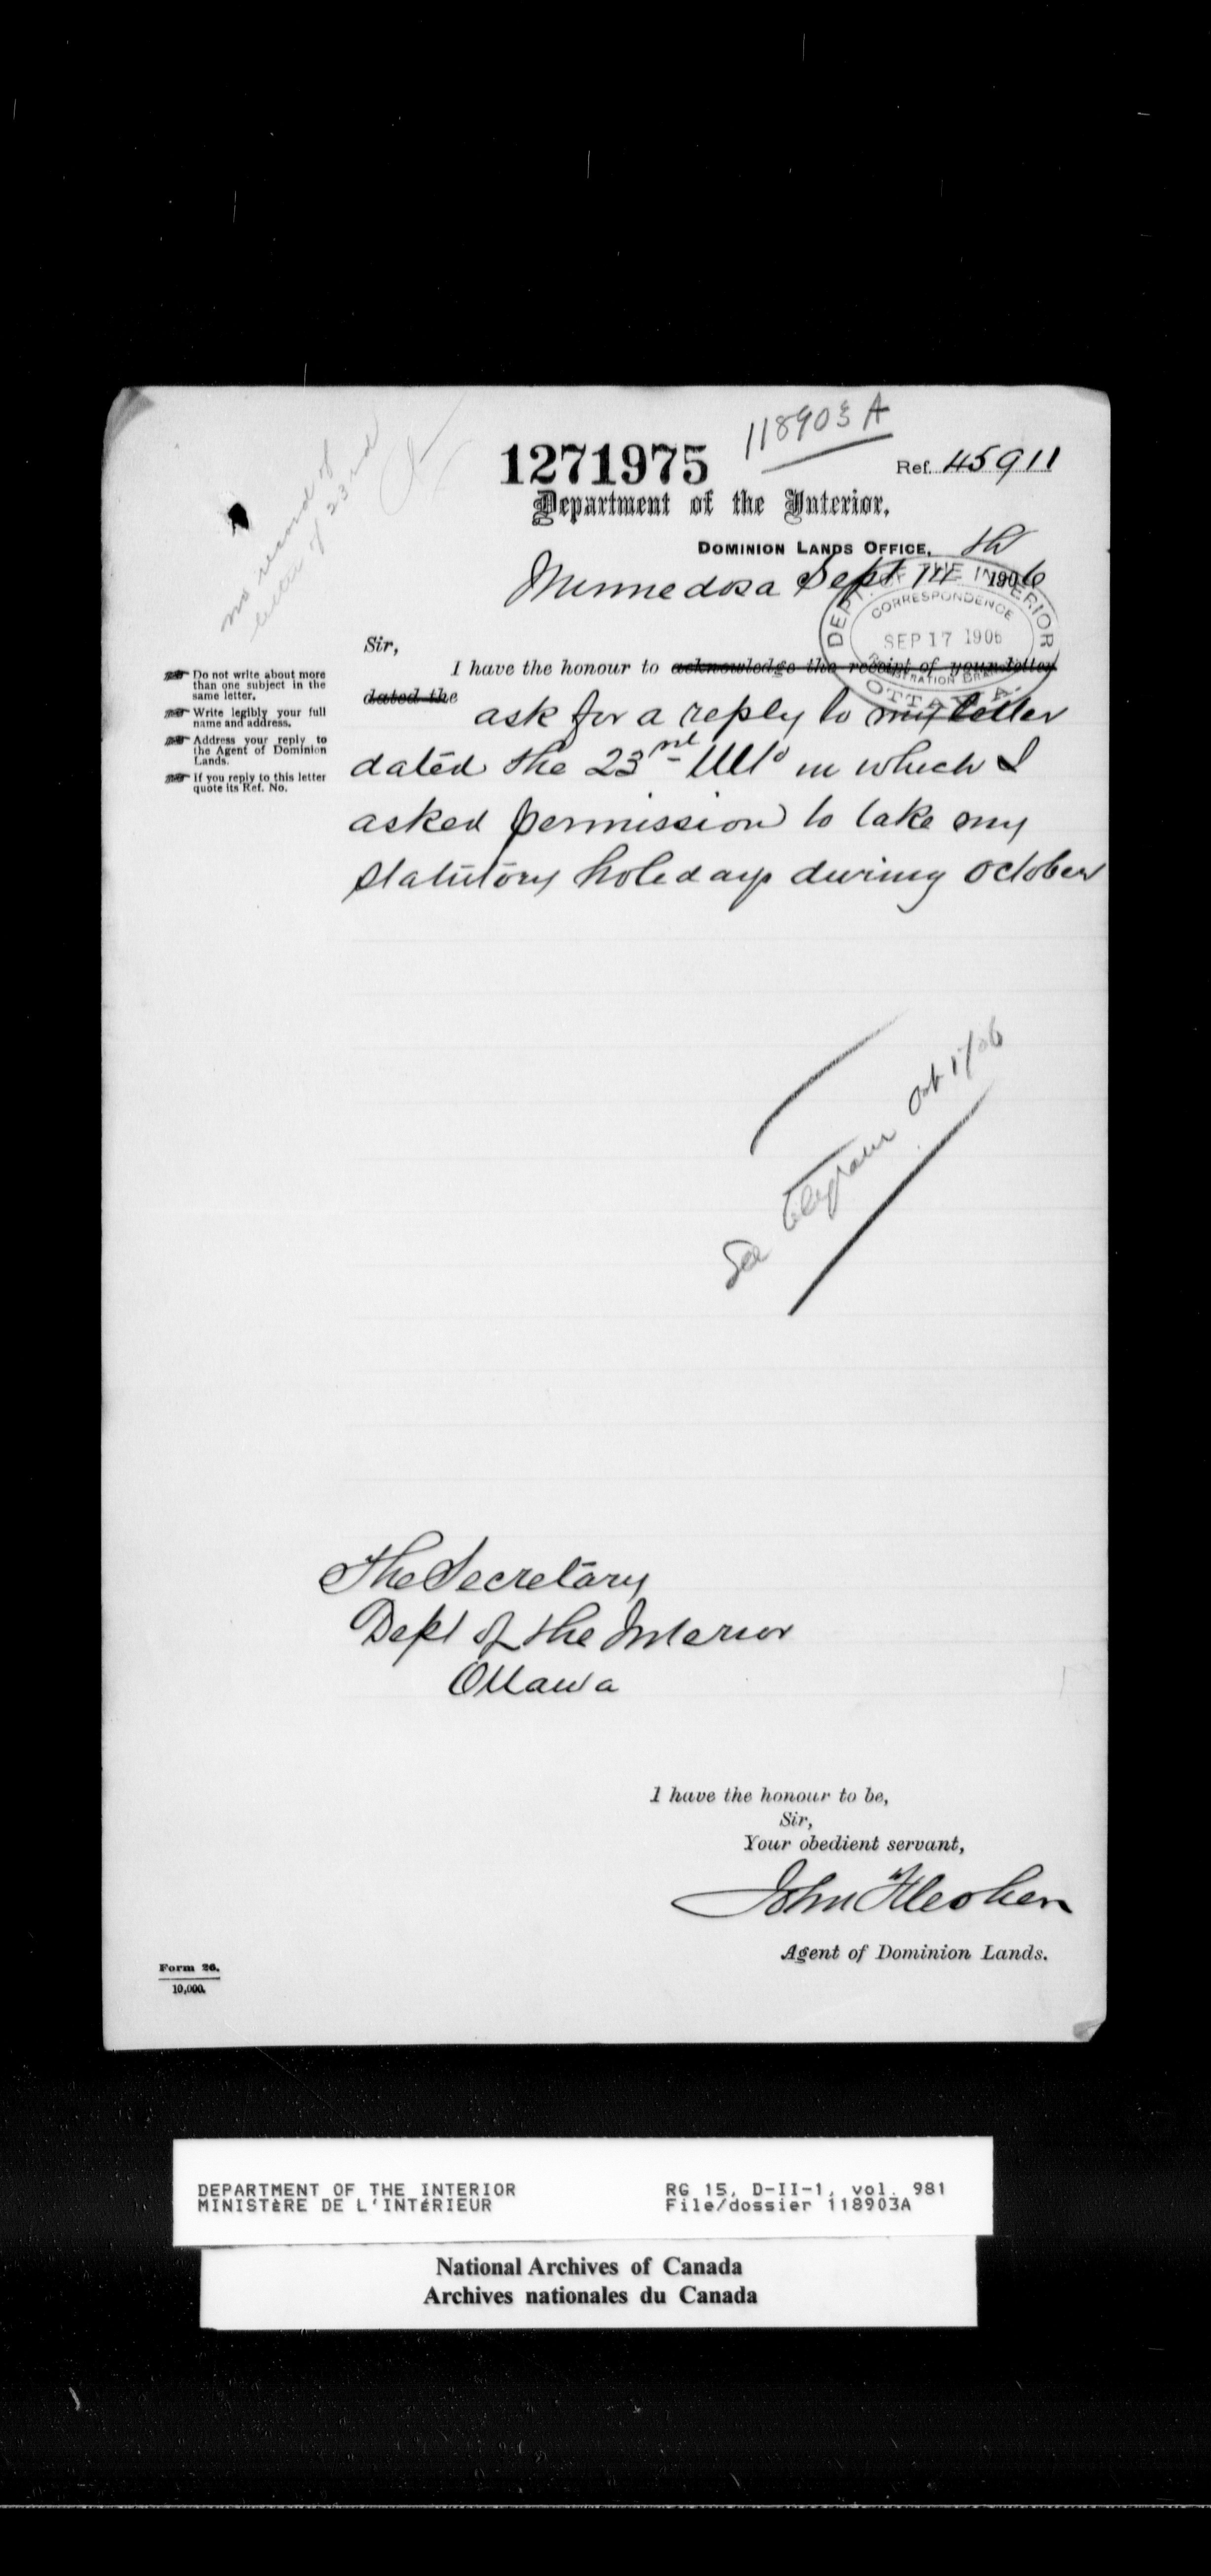 118903 A
1271975
Ref. 45911
Department of the Interior,
DOMINION LANDS OFFICE,
Minnedosa Sept 14th 1906
no record of
letter of 23rd
DEPT. OF THE INTERIOR
CORRESPONDENCE
SEP 17 1906
REGISTRATION BRANCH
OTTAWA.
Sir,
I have the honour to acknowledge the receipt of your letter
dated the
ask for a reply to my letter
dated the 23rd Ulto in which I
asked permission to take my
statutory holedays during October
Do not write about more
than one subject in the
same letter.
Write legibly your full
name and address.
Address your reply to
the Agent of Dominion
Lands.
If you reply to this letter
quote its Ref. No.
See telegram Oct 1/06
The Secretary
Dept of the Interior
Ottawa
I have the honour to be,
Sir,
Your obedient servant,
John Flesher
Agent of Dominion Lands.
Form 26.
10,000.
DEPARTMENT OF THE INTERIOR
MINISTÈRE DE L'INTÉRIEUR
RG 15, D-II-1, vol. 981
File/dossier 118903A
National Archives of Canada
Archives nationales du Canada